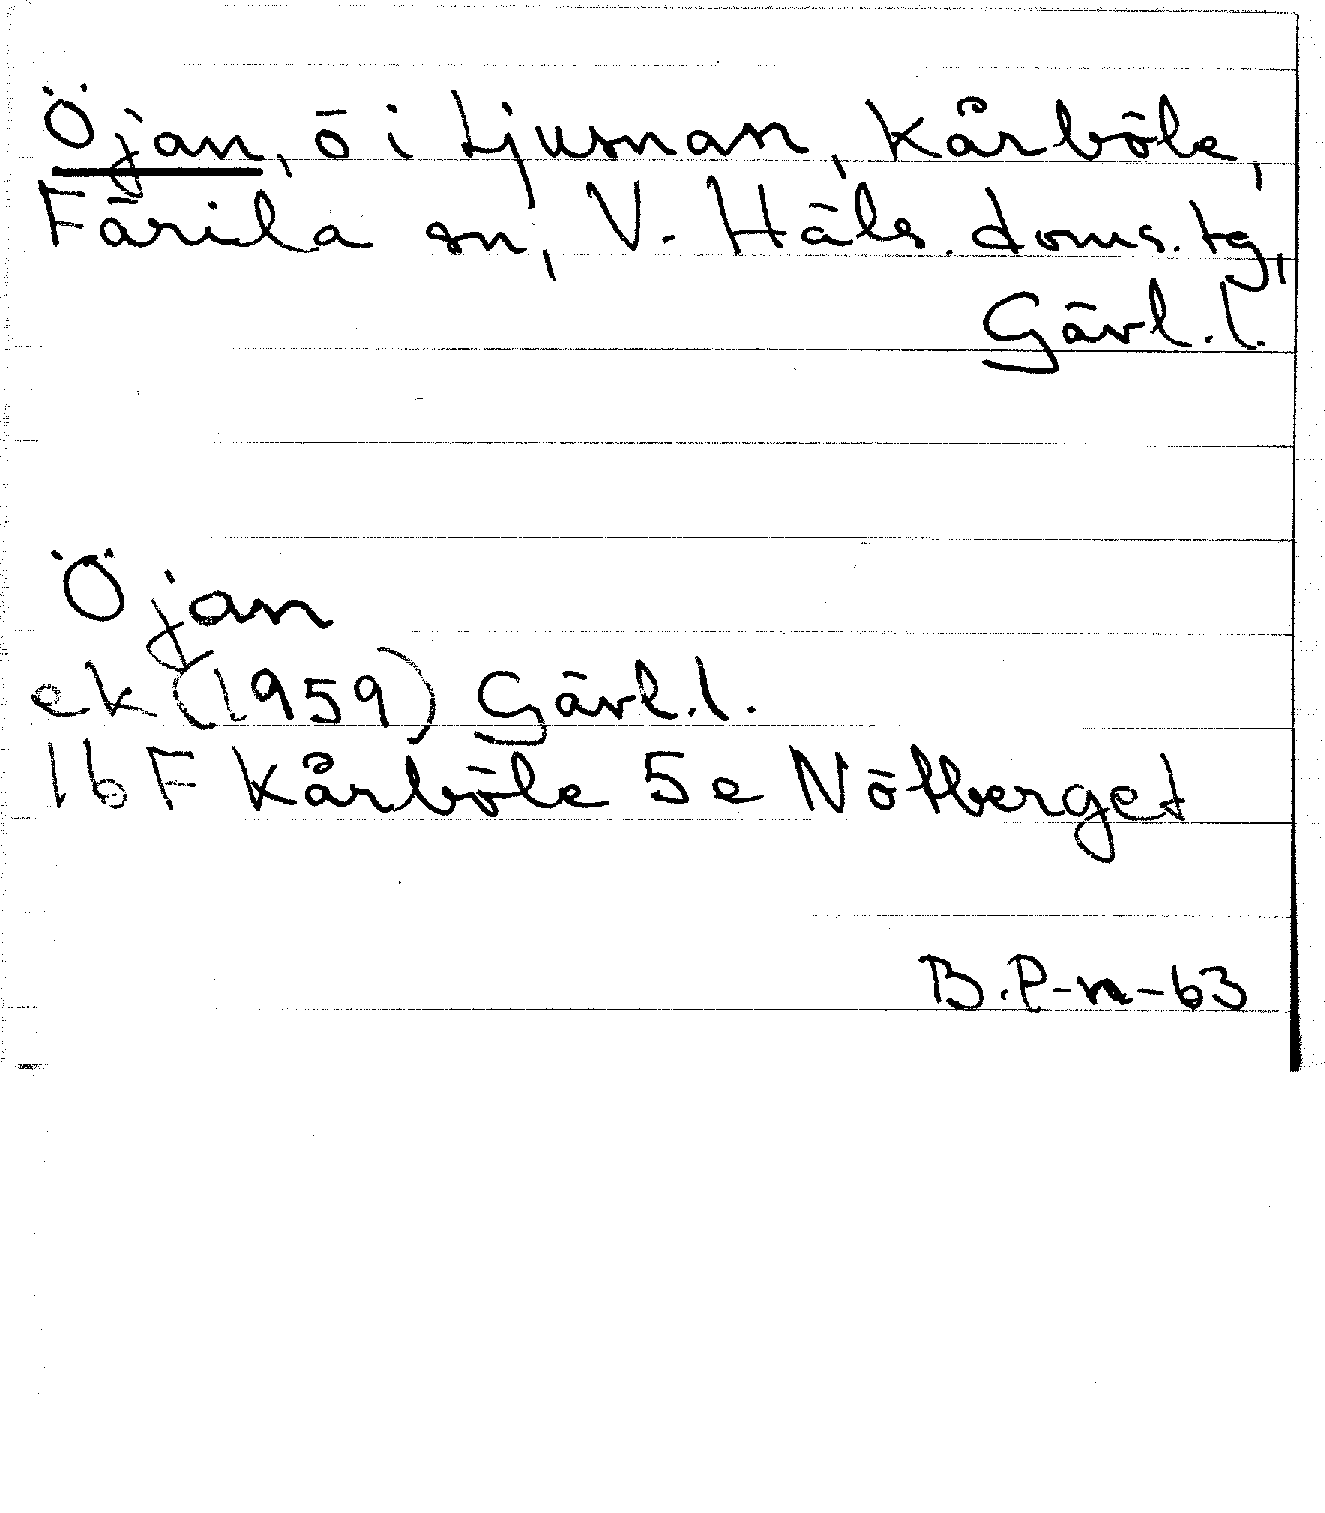 Öjan, ö i Ljusnan, Kårböle,
Färila sn, V. Häls. doms. tg,
Gävl. l.
Öjan
ek (1959) Gävl. l.
16 F Kårböle 5e Nötberget
B. P-n-63